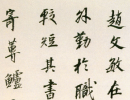 趙文敏
外勤於職
較短其書
寄蓴鱸